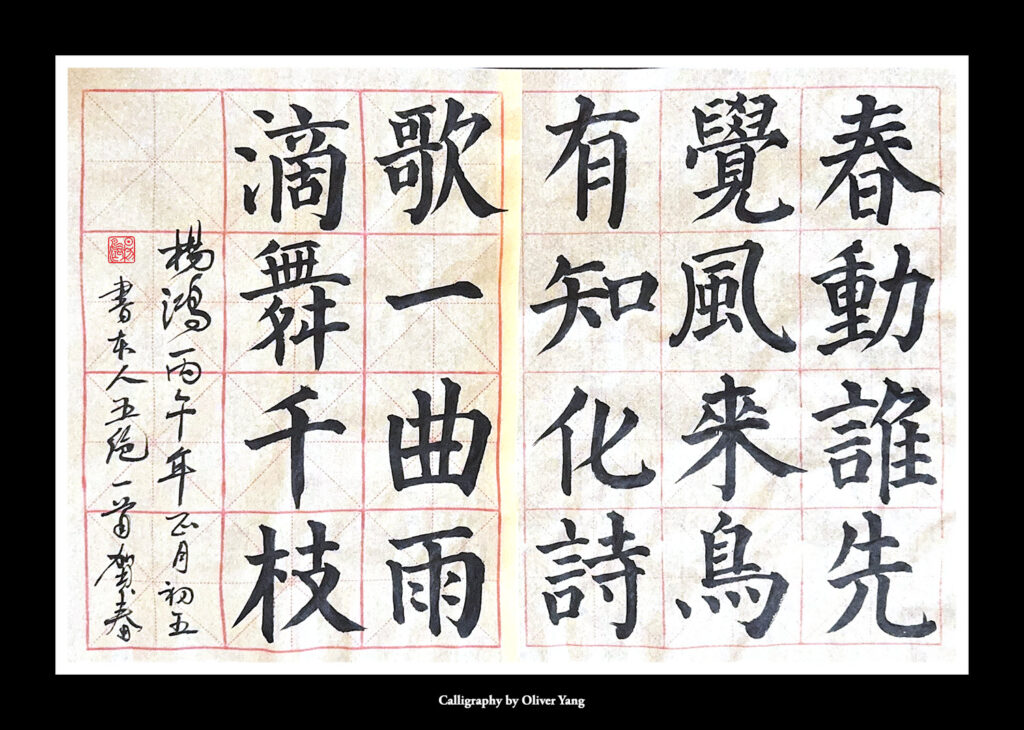 春動誰先
覺風來鳥
有知化詩
歌一曲雨
滴舞千枝
楊鴻丙午年正月初五
書本人五絕一首賀春
Calligraphy by Oliver Yang